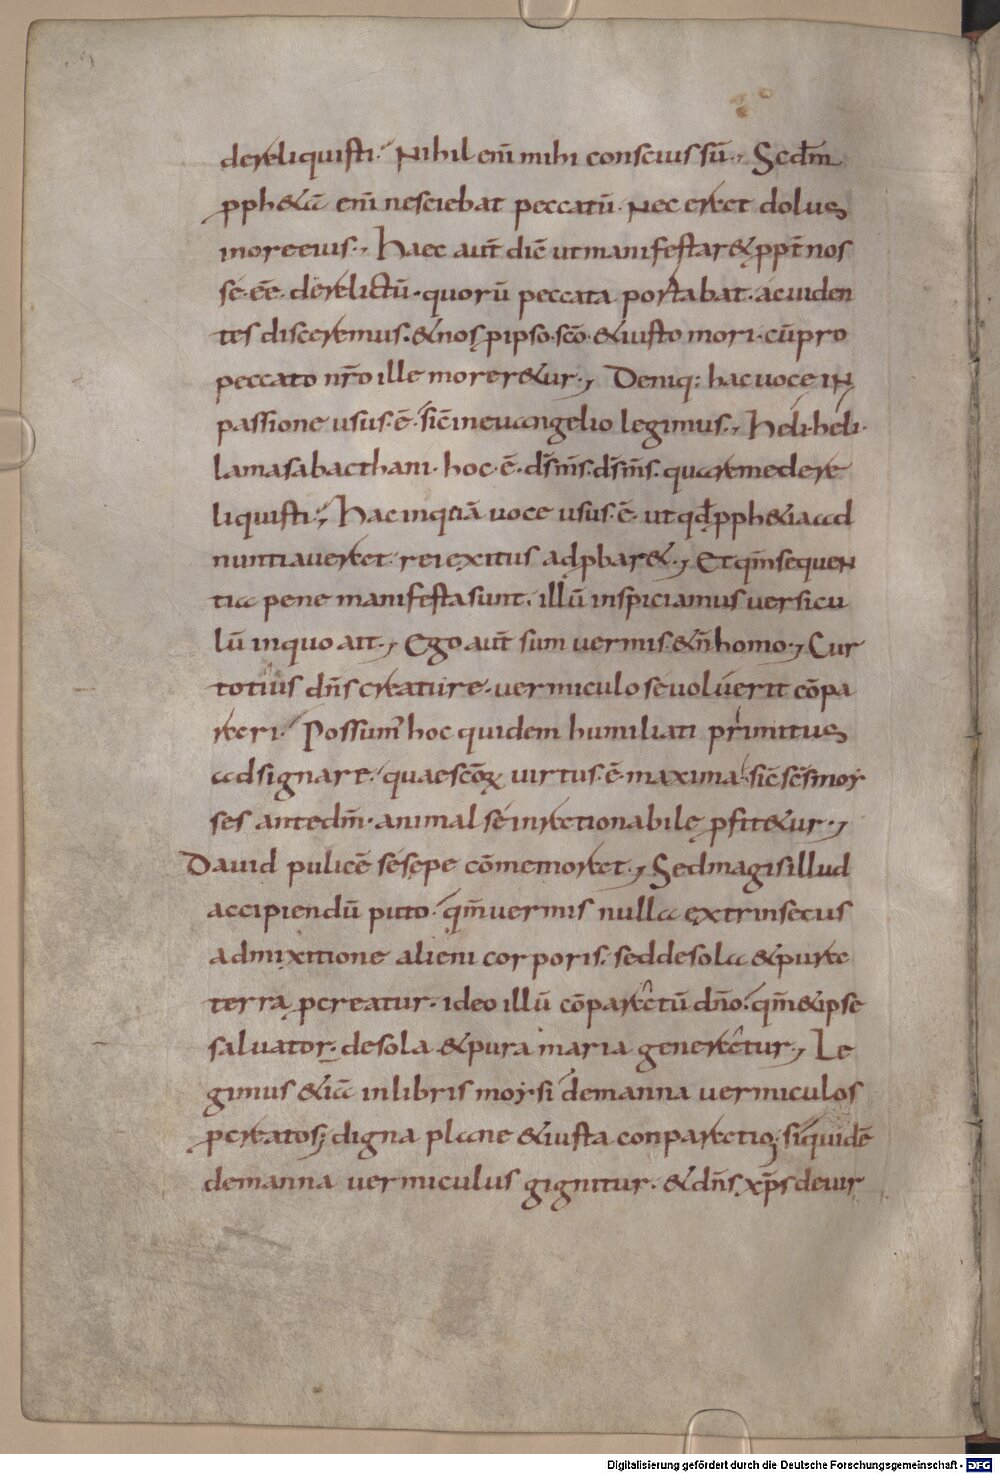 dereliquisti. Nihil enī mihi conscius sū., Scdm̄
ꝓph&ā enī nesciebat peccatū. Nec erat dolus
in ore eius., Haec aut̄ diē ut manifestar& ꝓpt̄ nos
sé. eē. derelictū. quorū peccata portabat. ac uiden
tes disceremus. & nos ꝑ ipso. scō. & iusto mori. cū pro
peccato nr̄o ille morer&ur., Deniq; hac uoce IN
passione usus. ē. sic̄ in euangelio legimus., Heli. heli.
lamasabacthani. hoc. ē. dṡ m̄s. dṡ m̄s. quare me dere
liquisti., Hac inquā uoce usus. ē. ut qđ ꝓph&ia ad
nuntiauerat. rei exitus adꝓbar&., Et qm̄ sequeN
tia pene manifesta sunt. illū inspiciamus uersicu
lū in quo ait., Ego aut̄ sum uermis. & n̄ homo., Cur
totius dn̄s creature. uermiculo se uoluerit cōpa
rari. Possum' hoc quidem humiliati primitus
adsignare. quae scōꝝ uirtus. ē. maxima. sic̄ scs̄ moy
ses ante dm̄. animal sé inrationabile ꝓfit&ur.,
Dauid pulicē sé sępe cōmemorat., Sed magis illud
accipiendū puto. qm̄ uermis nulla extrinsecus
admixitione alieni corporis. sed de sola & pura
terra ꝓcreatur. ideo illū cōparatū dn̄o. qm̄ & ipse
saluator. de sola & pura maria generatur., Le
gimus &iā in libris moysi de manna uermiculos
ꝓcreatos; digna plane & iusta conparatio; siquidē
de manna uermiculus gignitur. & dn̄s xp̄s de uir
Digitalisierung gefördert durch die Deutsche Forschungsgemeinschaft - DFG